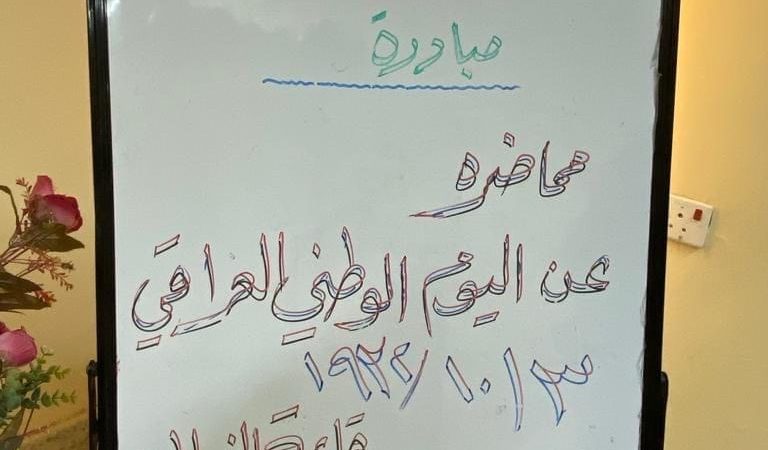 مبادرة
محاضره
عن اليوم الوطني العراقي
٣/١٠/١٩٣٢